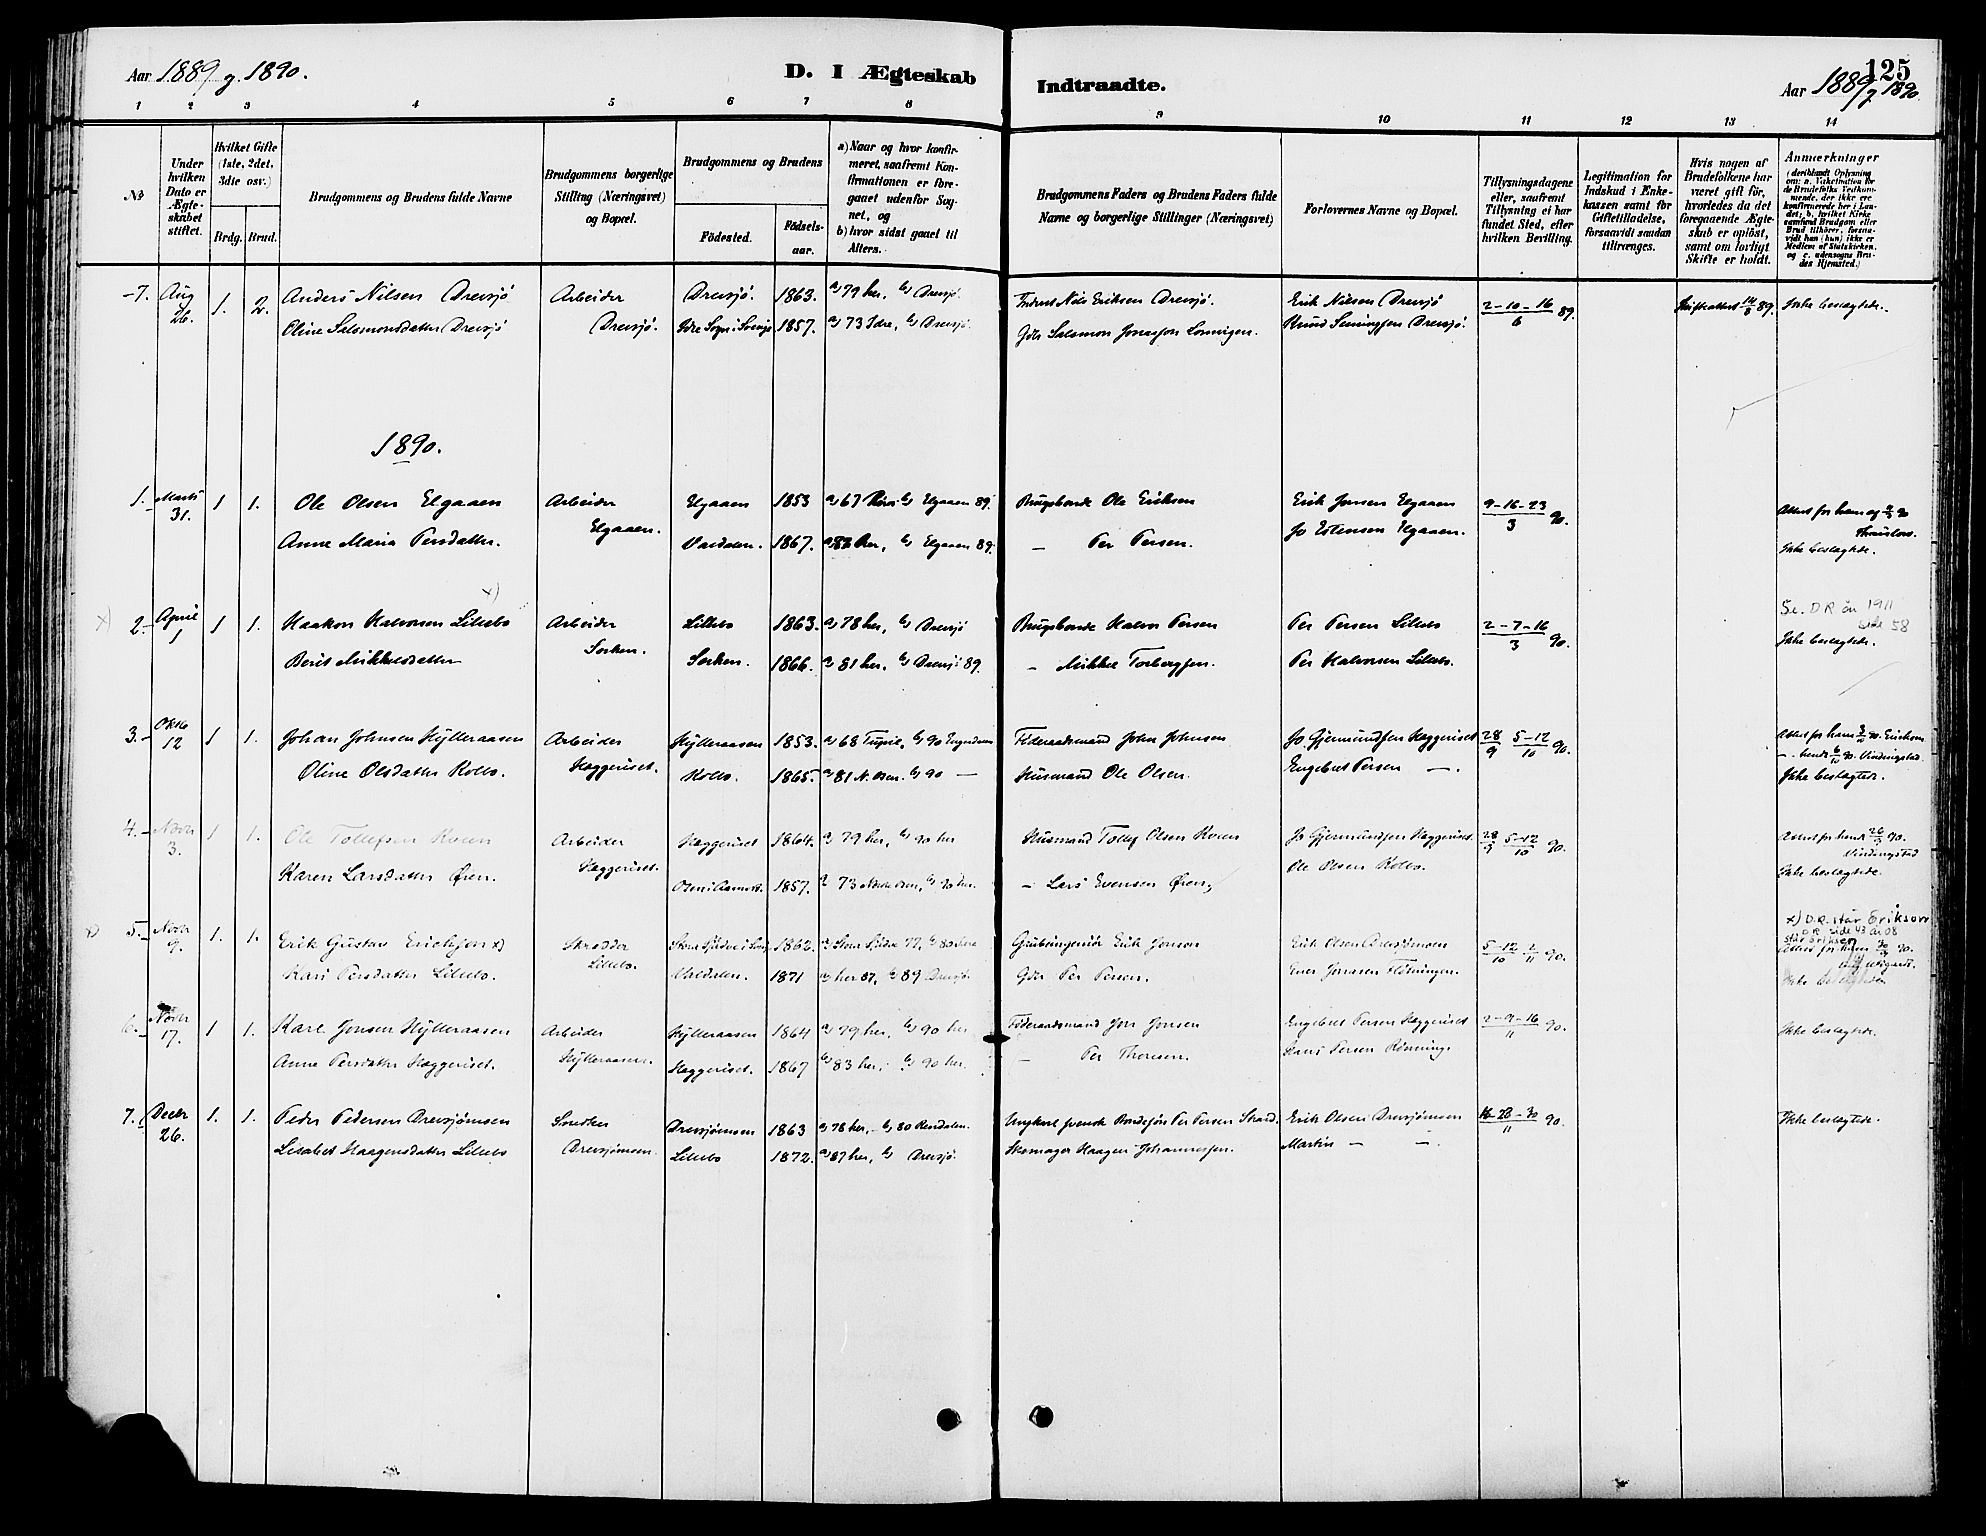 Aar 1889 g. 1890.
D. I Ægteskab
Indtraadte.
125
Aar 1889/g 1890.
1 2 3 4 5 6 7 8 9 10 11 12 13 14
No
Under hvilken Dato er Ægteskabet stiftet.
Hvilket Gifte (1ste, 2det, 3die osv.)
Brdg. Brud.
Brudgommens og Brudens fulde Navne
Brudgommens borgerlige Stilling (Næringsvei) og Bopæl.
Brudgommens og Brudens
Fødested. Fødselsaar.
a) Naar og hvor konfirmeret, saafremt Konfirmationen er foregaaet udenfor Sognet, og
b) hvor sidst gaaet til Alters.
Brudgommens Faders og Brudens Faders fulde Navne og borgerlige Stillinger (Næringsvei)
Forlovernes Navne og Bopæl.
Tillysningsdagene eller, saafremt Tillysning ei har fundet Sted, efter hvilken Bevilling.
Legitimation for Indskud i Enkekassen samt for Giftetilladelse, forsaavidt saadan tiltrænges.
Hvis nogen af Brudefolkene har været gift før, hvorledes da det foregaaende Ægteskab er opløst, samt om lovligt Skifte er holdt.
Anmærkninger
(deriblandt Oplysning om: a. Vakcination for de Brudefolks Vedkommende, der ikke ere konfirmerede her i Landet; b. hvilket Kirkesamfund Brudgom eller Brud tilhører, forsaavidt han (hun) ikke er Medlem af Statskirken, og c. udensogns Brudes Hjemsted.)
7. Aug 26. 1. 2. Anders Nilsen Drevsjø Arbeider Drevsjø. 1863. a) 79 her, b) Drevsjø. Nils Eriksen Drevsjø. Erik Nilsen Drevsjø 2-10-16/6 89. Skifteattest 89. Ikke beslægtede.
Oline Salomonsdatter Drevsjø Drevsjø. Idre Sogn i Sverige 1857. a) 73 Idre, b) Drevsjø. Salomon Jonassen Knud Drevsjø.
1890.
1. Marts 31. 1 1. Ole Olsen Elgaaen Arbeider Elgaaen 1853 a) 67 b) Elgaaen 89. Brugsbonde Ole Eriksen Erik Jonsen Elgaaen 9-16-23/3 90. Attest for ham af
Anne Maria Persdatter. Elgaaen. Valdalen. 1867. a) 82 her, b) Elgaaen 89. – Per Persen. Jo Estensen Elgaaen. Ikke beslægtede.
x)
x) 2. April 1 1 1. Haakon Halvorsen Lillebo Arbeider Lillebo 1863. a) 78 her, b) Drevsjø Brugsbonde Halvor Persen Per Persen Lillebo 2-7-16/3 90. Se. DR år 1911 side 58
Berit Mikkelsdatter Sorken Sorken. 1866. a) 81 her, b) Drevsjø 89. – Mikkel Torbergsen. Per Halvorsen Lillebo. Ikke beslægtede.
3. Oktb 12 1 1. Johan Johnsen Hylleraasen Arbeider Hylleraasen 1853. a) 68 Trysil, b) 90 Engerdalen Føderaadsmand John Johnsen Jo Gjermundsen Heggeriset 28/9 5-12/10 90. Attest for ham
Oline Olsdatter Kolbo. Heggeriset. Kolbo. 1865. a) 81 N. Osen. b) 90 – Husmand Ole Olsen. Engebret Persen –. Ikke beslægtede.
4. Novbr 3. 1 1. Ole Tollefsen Arbeider Heggeriset 1864. a) 79 her, b) 90 her Husmand Tollef Olsen Jo Gjermundsen Heggeriset 28/9 5-12/10 90. Attest for hende 90.
Karen Larsdatter Øren. Heggeriset. 1857. a) 73 Nordre Osen, b) 90 her. – Lars Evensen Øren, Ole Olsen Kolbo. Ikke beslægtede.
x) 5. Novbr 9. 1. 1. Erik Gustav Erichsen x) Skredder Stora 1862. Erik Jonson Erik Olsen Drevsjømoen 5-12/10 1/11 90. x) D.R. står Erikson
Kari Persdatter Lillebo. Lillebo. Valdalen. 1871 a) her 87, b) 89 Drevsjø. Gdr Per Persen. D.R. side 43 år 08 står Eriksen
Ikke beslægtede
6. Novbr 17. 1 1. Karl Jonsen Hylleraasen Arbeider Hylleraasen 1864 a) 79 her, b) 90 her Føderaadsmand Jon Jonsen Engebret Persen Heggeriset 2-9-16/11 90. Ikke beslægtede.
Anne Persdatter Heggeriset. Hylleraasen. Heggeriset. 1867 a) 83 her, b) 90 her. – Per Thoresen. Hans Persen Rönning.
7. Decbr 26. 1. 1. Peder Pedersen Drevsjømoen Snedker Drevsjømoen 1863 a) 78 her, b) 80 Rendalen. Ungkarl Per Persen Strand. Erik Olsen Drevsjømoen 16-23-30/11 90. Ikke beslægtede.
Lisabet Haagensdatter Lillebo Drevsjømoen. Lillebo 1872. a) 87 her, b) Drevsjø. Skomager Haagen Johannessen. Martin – –.